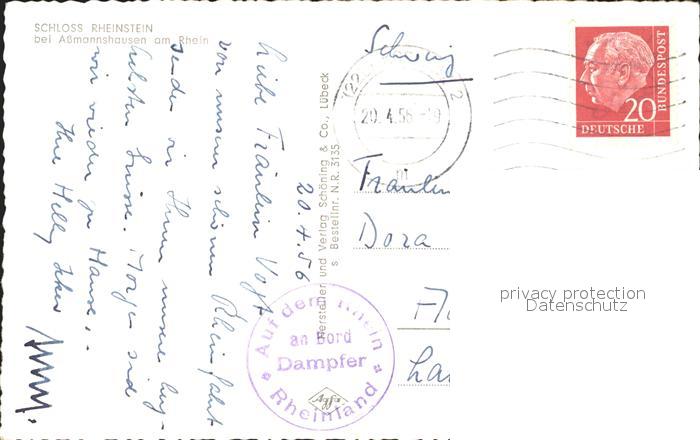 SCHLOSS RHEINSTEIN
bei Aßmannshausen am Rhein
20.4.56
Liebe Fräulein Vogt
von unserer schönen Rheinfahrt
senden wir Ihnen unsere herz-
lichsten Grüsse. Morgen sind
wir wieder zu Hause.
Ihre Helly
Hersteller und Verlag Schöning & Co., Lübeck
Bestellnr. N.R. 3135
Schweiz
20.4.56
20
DEUTSCHE
BUNDESPOST
Fräulein
Dora
Auf dem Rhein
an Bord
Dampfer
Rheinland
Agfa
privacy protection
Datenschutz